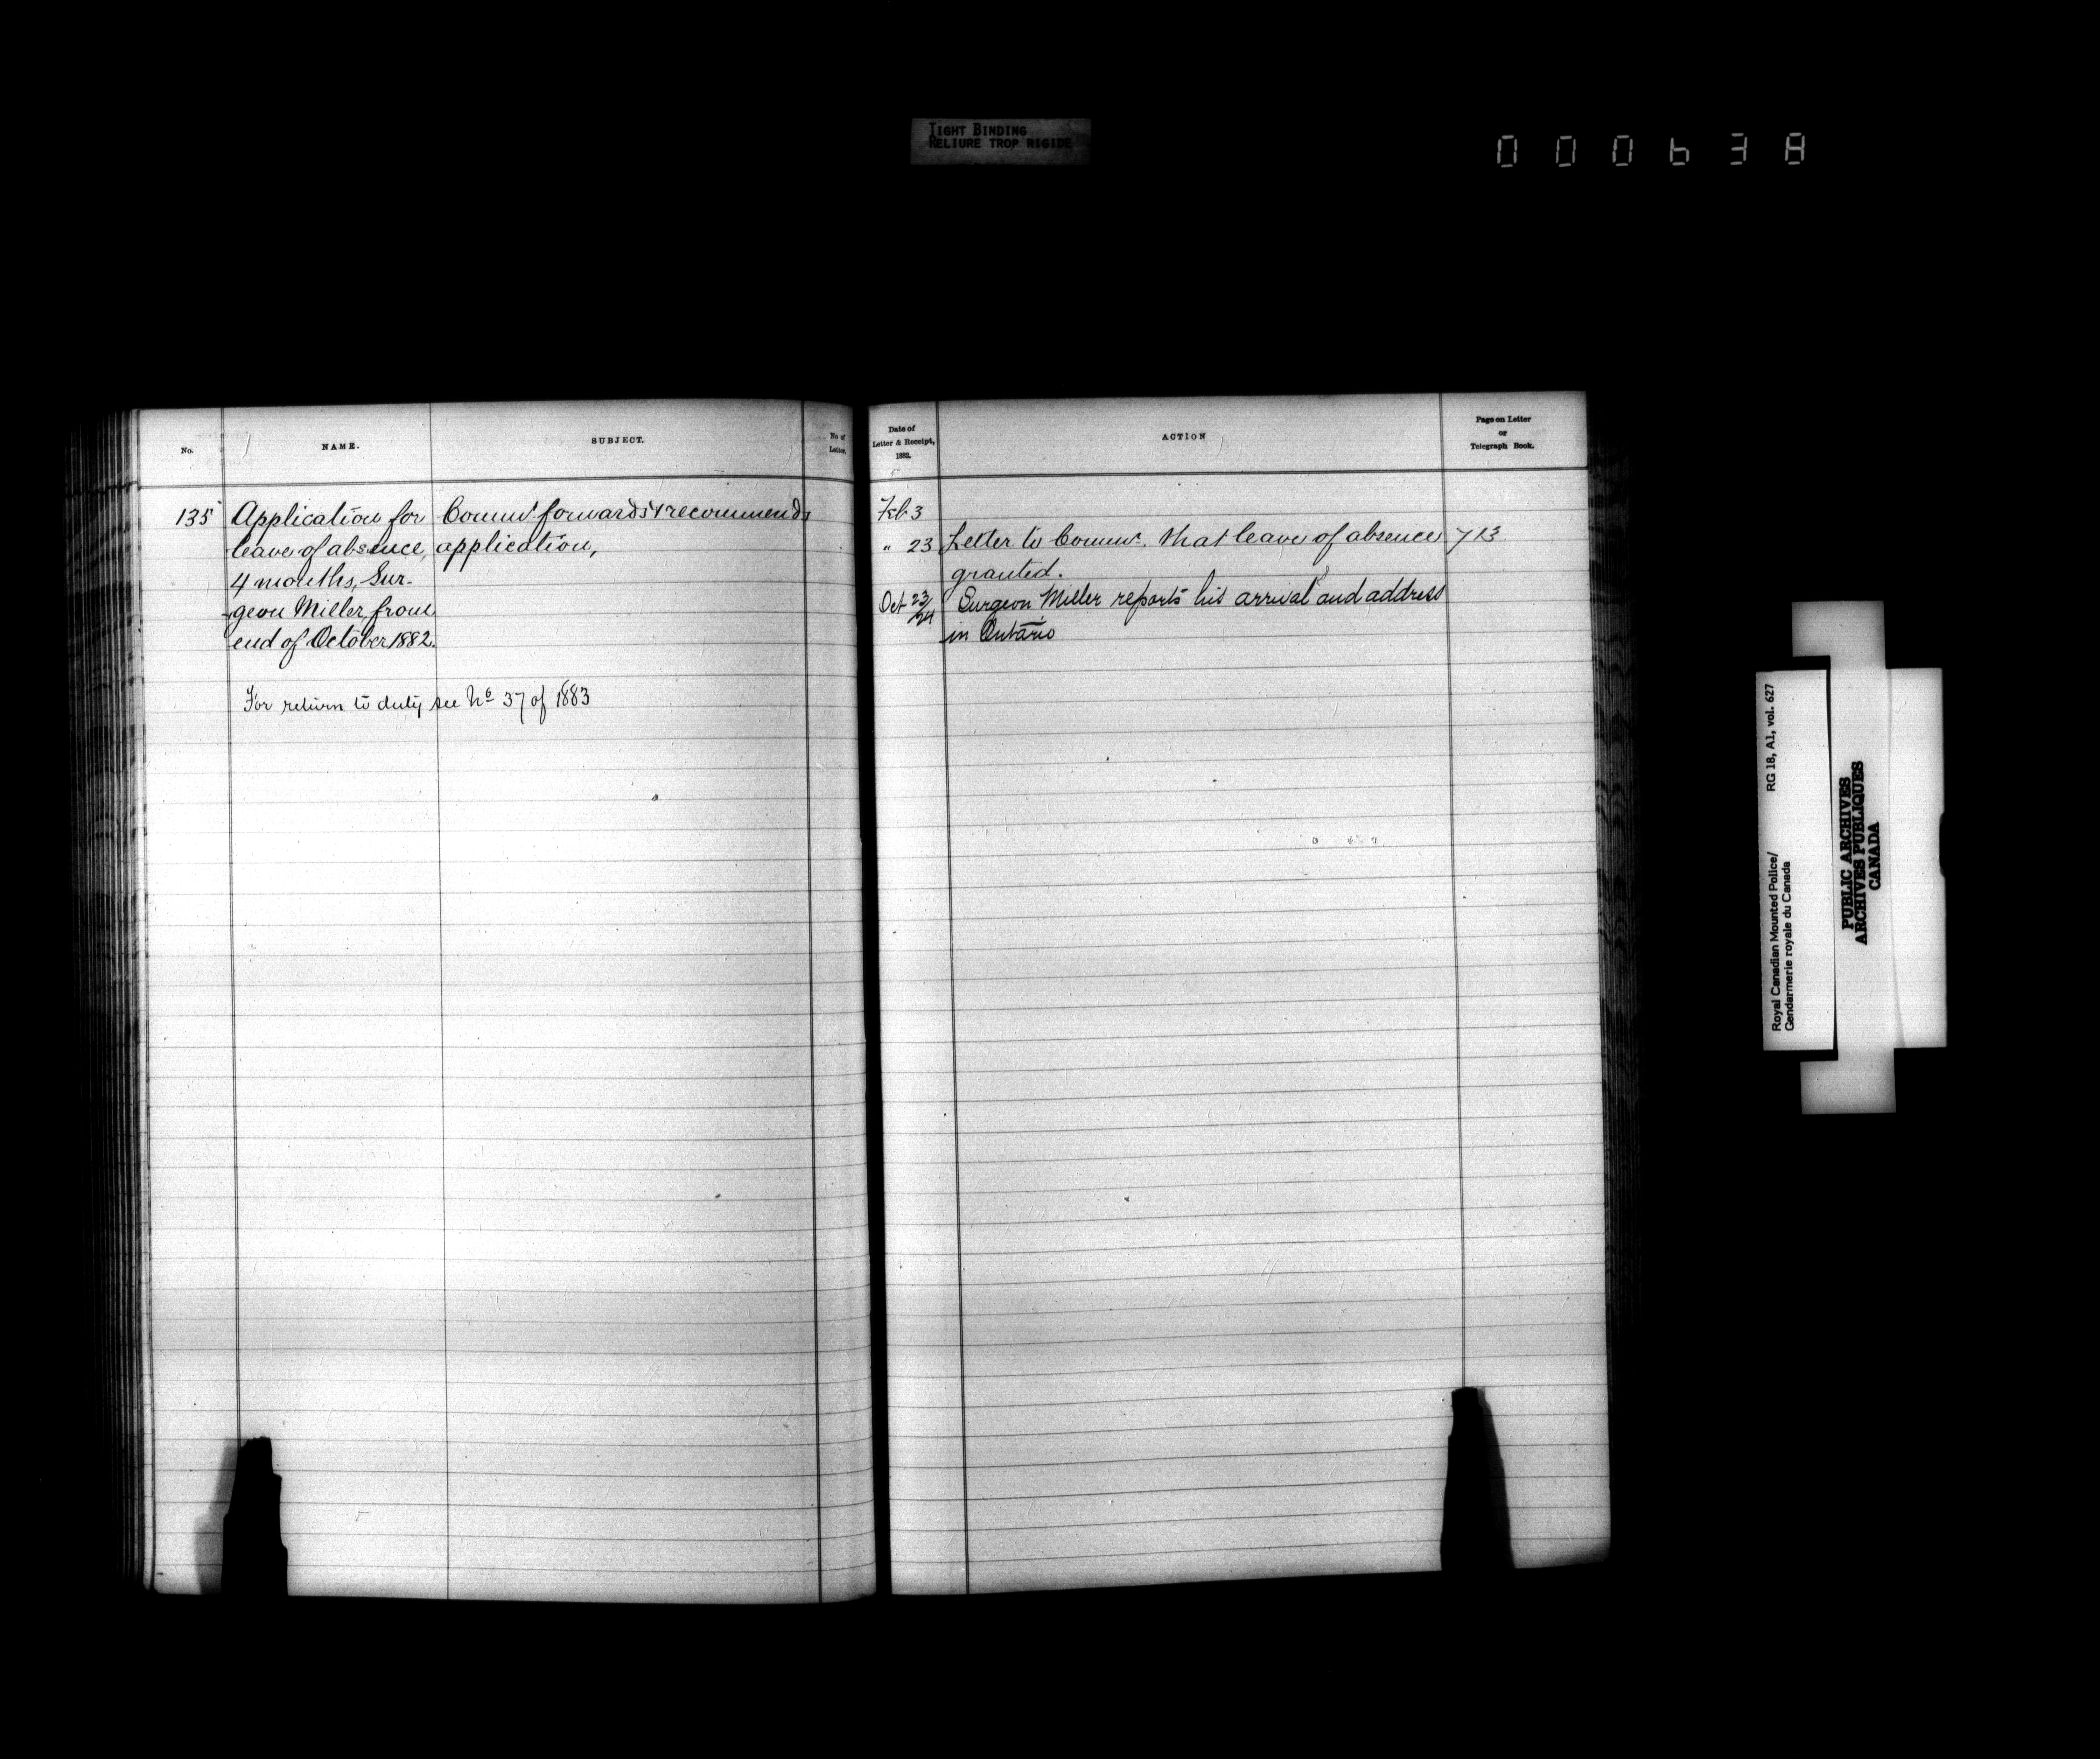 TIGHT BINDING
RELIURE TROP RIGIDE
000638
No.
NAME.
SUBJECT.
No of
Letter.
Date of
Letter & Receipt,
1882.
ACTION
Page on Letter
or
Telegraph Book.
135 Application for Commr. forwards & recommends
leave of absence, application,
4 months, Sur-
-geon Miller, from
end of October 1882.
For return to duty see No 37 of 1883
Feb 3
" 23 Letter to Commr. that leave of absence 713
granted.
Oct 23/24 Surgeon Miller reports his arrival and address
in Ontario
RG 18, A1, vol. 627
Royal Canadian Mounted Police/
Gendarmerie royale du Canada
PUBLIC ARCHIVES
ARCHIVES PUBLIQUES
CANADA